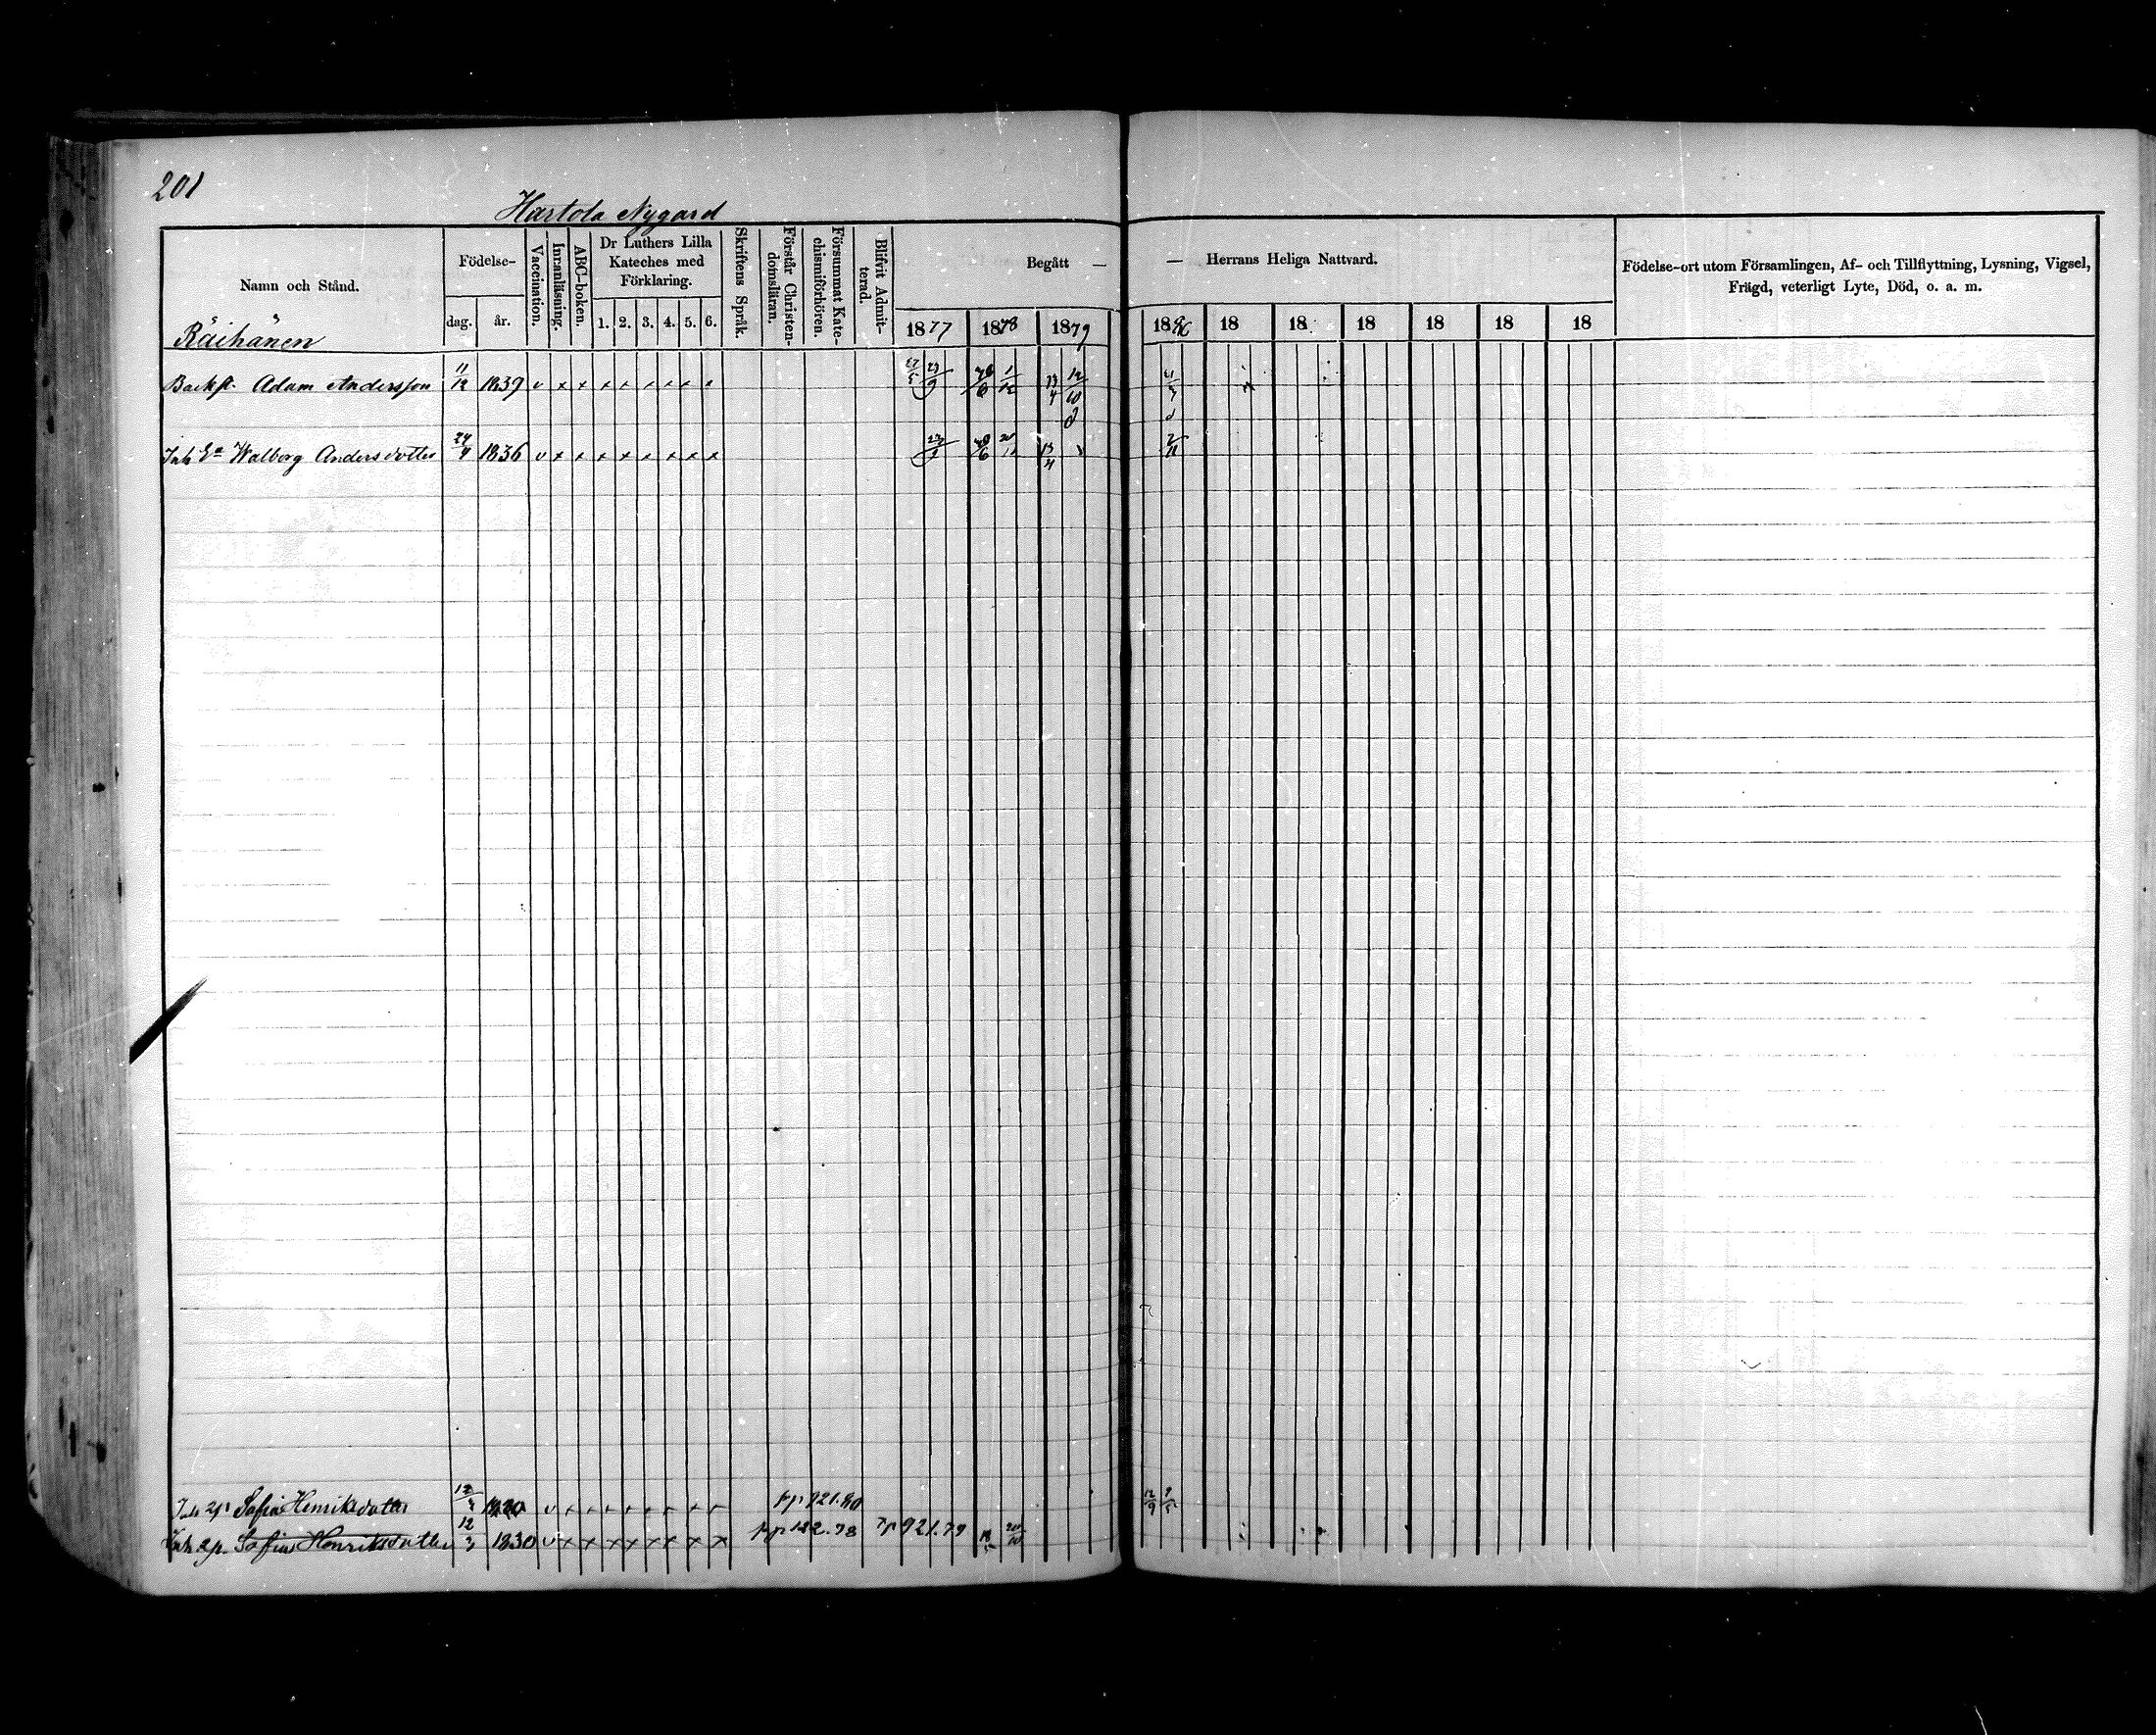 201
Hartola Nygard
Namn och Stånd.
Födelse-
dag.
år.
Vaccination.
Innanläsning.
ABC-boken.
Dr Luthers Lilla
Kateches med
Förklaring.
1. 2. 3. 4. 5. 6.
Skriftens Språk.
Förstår Christen-
domsläran.
Försummat Kate-
chismiförhören.
Blifvit Admit-
terad.
Begått —
— Herrans Heliga Nattvard.
1877 1878 1879
1880 18 18 18 18 18 18
Födelse-ort utom Församlingen, Af- och Tillflyttning, Lysning, Vigsel,
Frägd, veterligt Lyte, Död, o. a. m.
Räihänen
Backst. Adam Andersson 11/12 1839 v x x x x x x x x 27/5 23/9 1/12 13/4 12/10
Inh Ea Walborg Andersdotter 24/4 1836 v x x x x x x x x 13/4 2/11
Inh 2p Sofia Henriksdotter 12/3 1830 pp 921.80 12/9 9/5
Inh. 2p. Sofia Henriksdotter 12/3 1830 v x x x x x x x x pp 122.78 Tp 921.79 20/10